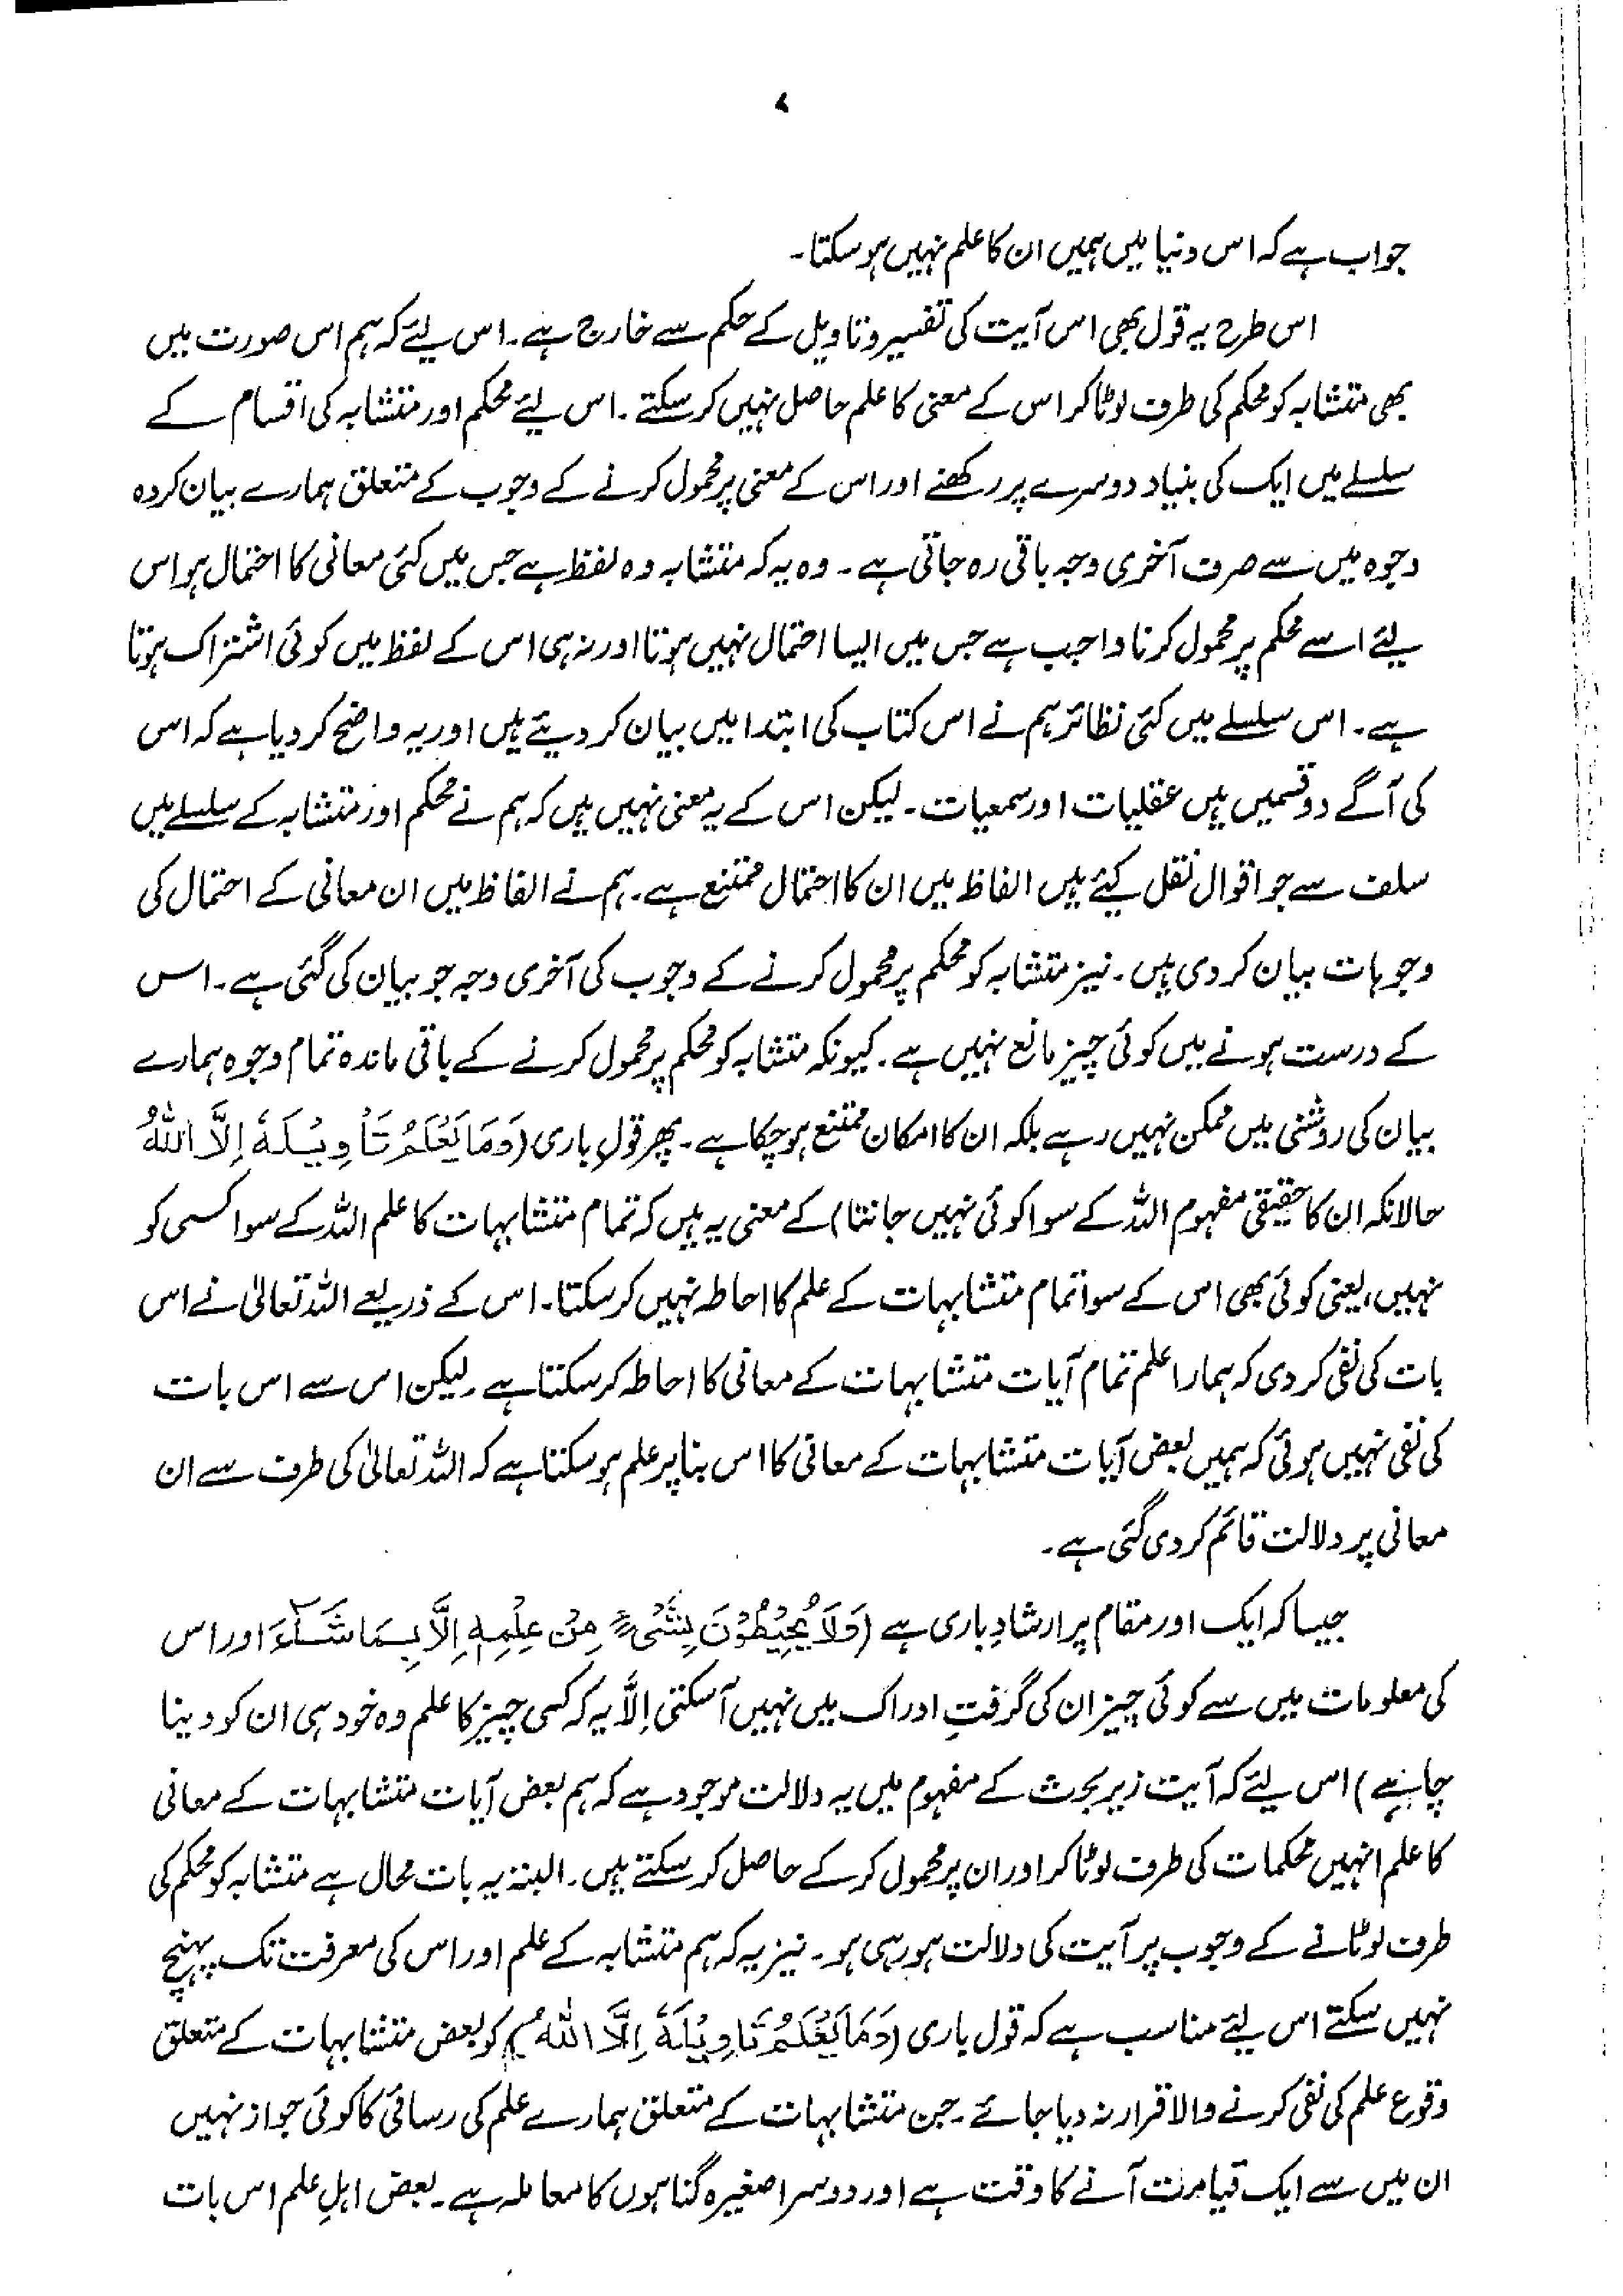 جواب ہے کہ اس دنیا میں ہمیں ان کا علم نہیں ہو سکتا۔
اس طرح یہ قول بھی اس آیت کی تفسیر و تاویل کے حکم سے خارج ہے۔ اس لیئے کہ ہم اس صورت میں
بھی متشابہ کو محکم کی طرف لوٹا کر اس کے معنی کا علم حاصل نہیں کر سکتے۔ اس لیئے محکم اور متشابہ کی اقسام کے
سلسلے میں ایک کی بنیاد دوسرے پر رکھنے اور اس کے معنی پر محمول کرنے کے وجوب کے متعلق ہمارے بیان کردہ
وجوہ میں سے صرف آخری وجہ باقی رہ جاتی ہے۔ وہ یہ کہ متشابہ وہ لفظ ہے جس میں کئی معانی کا احتمال ہو اس
لیئے اسے محکم پر محمول کرنا واجب ہے جس میں ایسا احتمال نہیں ہوتا اور نہ ہی اس کے لفظ میں کوئی اشتراک ہوتا
ہے۔ اس سلسلے میں کئی نظائر ہم نے اس کتاب کی ابتدا میں بیان کر دیئے ہیں اور یہ واضح کر دیا ہے کہ اس
کی آگے دو قسمیں ہیں عقلیات اور سمعیات۔ لیکن اس کے یہ معنی نہیں ہیں کہ ہم نے محکم اور متشابہ کے سلسلے میں
سلف سے جو اقوال نقل کیئے ہیں الفاظ میں ان کا احتمال ممتنع ہے۔ ہم نے الفاظ میں ان معانی کے احتمال کی
وجوہات بیان کر دی ہیں۔ نیز متشابہ کو محکم پر محمول کرنے کے وجوب کی آخری وجہ جو بیان کی گئی ہے۔ اس
کے درست ہونے میں کوئی چیز مانع نہیں ہے۔ کیونکہ متشابہ کو محکم پر محمول کرنے کے باقی ماندہ تمام وجوہ ہمارے
بیان کی روشنی میں ممکن نہیں رہے بلکہ ان کا امکان ممتنع ہو چکا ہے۔ پھر قولِ باری (وَمَا يَعْلَمُ تَأْوِيْلَهٗ اِلَّا اللّٰهُ
حالانکہ ان کا حقیقی مفہوم اللہ کے سوا کوئی نہیں جانتا) کے معنی یہ ہیں کہ تمام متشابہات کا علم اللہ کے سوا کسی کو
نہیں، یعنی کوئی بھی اس کے سوا تمام متشابہات کے علم کا احاطہ نہیں کر سکتا۔ اس کے ذریعے اللہ تعالیٰ نے اس
بات کی نفی کر دی کہ ہمارا علم تمام آیات متشابہات کے معانی کا احاطہ کر سکتا ہے۔ لیکن اس سے اس بات
کی نفی نہیں ہوئی کہ ہمیں بعض آیات متشابہات کے معانی کا اس بنا پر علم ہو سکتا ہے کہ اللہ تعالیٰ کی طرف سے ان
معانی پر دلالت قائم کر دی گئی ہے۔
جیسا کہ ایک اور مقام پر ارشادِ باری ہے (وَلَا يُحِيْطُوْنَ بِشَىْءٍ مِنْ عِلْمِهٖ اِلَّا بِمَا شَآءَ اور اس
کی معلومات میں سے کوئی چیز ان کی گرفتِ ادراک میں نہیں آ سکتی اِلَّا یہ کہ کسی چیز کا علم وہ خود ہی ان کو دینا
چاہے) اس لیئے کہ آیت زیر بحث کے مفہوم میں یہ دلالت موجود ہے کہ ہم بعض آیات متشابہات کے معانی
کا علم انہیں محکمات کی طرف لوٹا کر اور ان پر محمول کر کے حاصل کر سکتے ہیں۔ البتہ یہ بات محال ہے متشابہ کو محکم کی
طرف لوٹانے کے وجوب پر آیت کی دلالت ہو رہی ہو۔ نیز یہ کہ ہم متشابہ کے علم اور اس کی معرفت تک پہنچ
نہیں سکتے اس لیئے مناسب ہے کہ قول باری (وَمَا يَعْلَمُ تَاْوِيْلَهٗ اِلَّا اللّٰهُ) کو بعض متشابہات کے متعلق
وقوع علم کی نفی کرنے والا قرار نہ دیا جائے۔ جن متشابہات کے متعلق ہمارے علم کی رسائی کا کوئی جواز نہیں
ان میں سے ایک قیامت آنے کا وقت ہے اور دوسرا صغیرہ گناہوں کا معاملہ ہے۔ بعض اہلِ علم اس بات